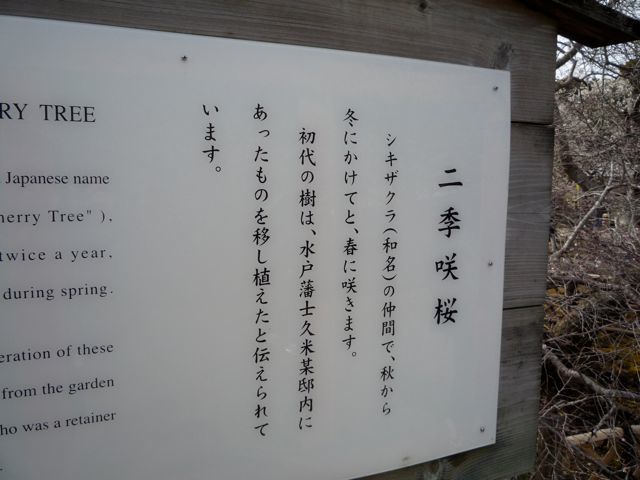 二季咲桜
シキザクラ(和名)の仲間で、秋から
冬にかけてと、春に咲きます。
初代の樹は、水戸藩士久米某邸内に
あったものを移し植えたと伝えられて
います。
RY TREE
Japanese name
herry Tree" ),
twice a year,
during spring.
eration of these
from the garden
ho was a retainer